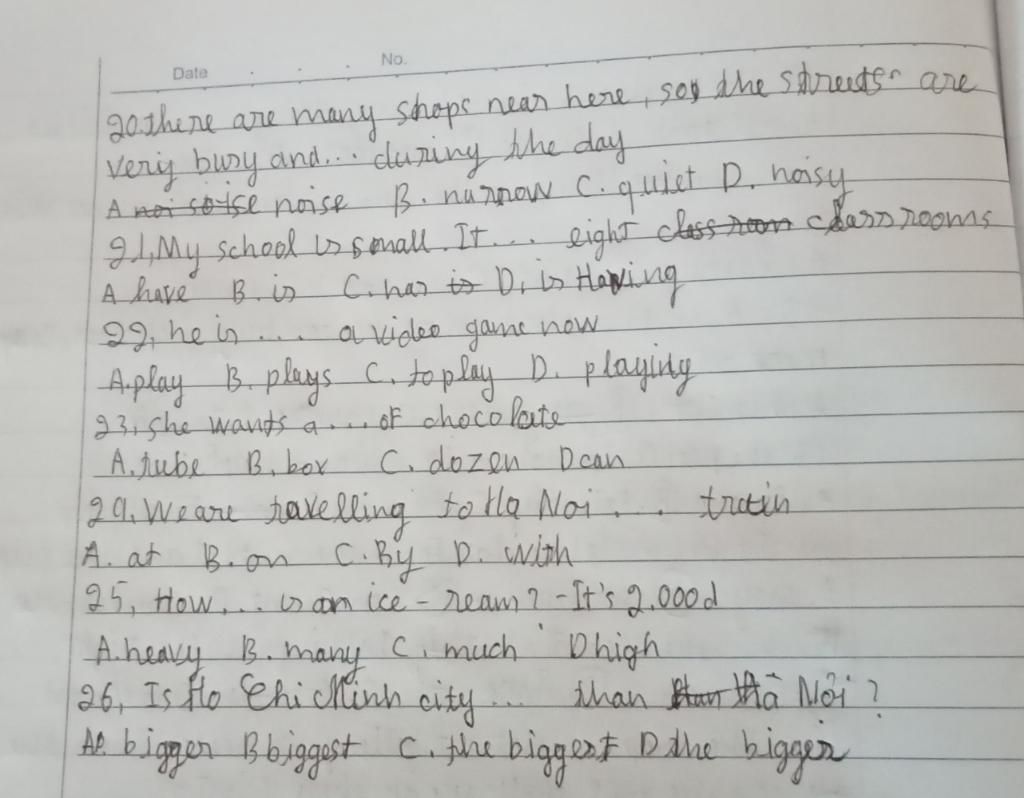 Date . . . No.
20.there are many shops near here, so the streets are
very busy and... during the day
A noise B. narrow C. quiet D. noisy
21, My school is small. It... eight classrooms
A have B. is C. has D, is Having
22, he is .... a video game now
A.play B. plays C. to play D. playing
23, she wants a ... of chocolate
A. tube B. box C. dozen D can
24, We are travelling to Ha Noi ... train
A. at B. on C. By D. with
25, How... is an ice-ream? -It's 2.000d
A. heavy B. many C. much D high
26, Is Ho Chi Minh city ... than Hà Nôi?
A. bigger B biggest C. the biggest D the bigger